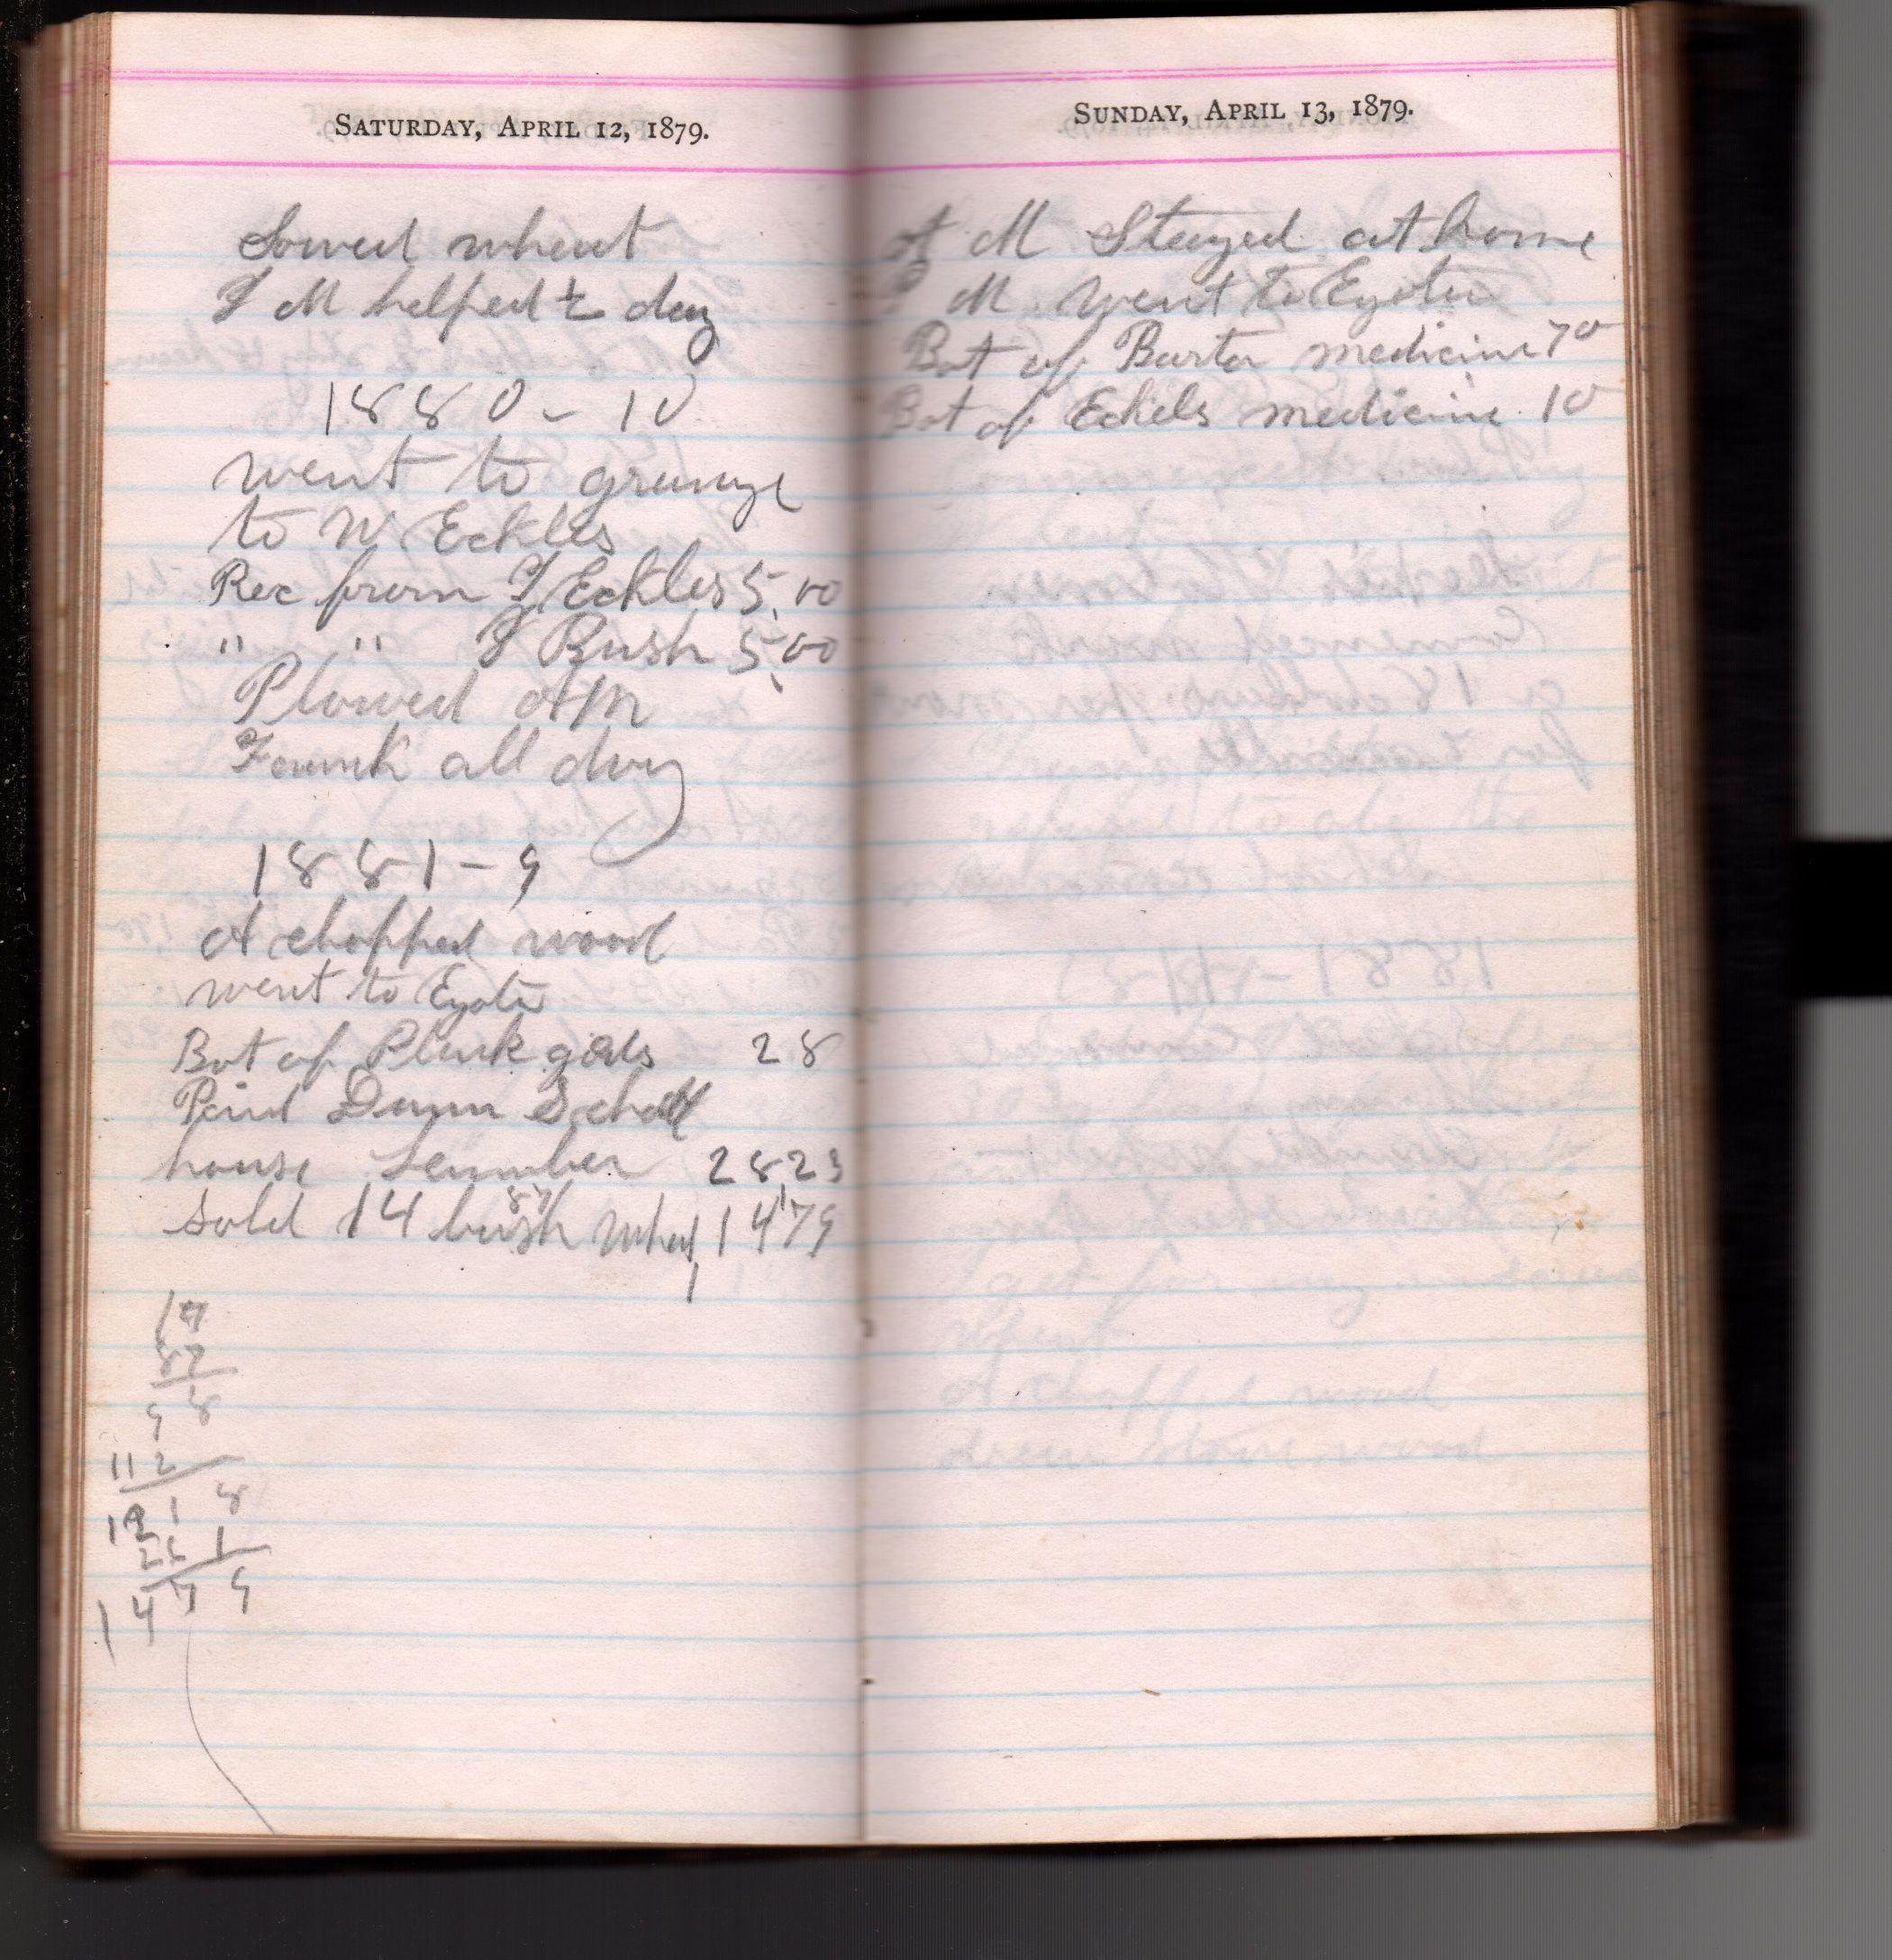 SATURDAY, APRIL 12, 1879.
Sowed wheat
J M helped ½ day
1880 - 10
went to grange
to W Eckles
Rec from J Eckles 5.00
" " J Bush 5.00
Plowed AM
Frank all day
1881 - 9
A chopped wood
went to Eyota
Bot of Plank gods 28
Paid Dunn School
house Lumber 28 23
87
Sold 14 bush wheat 14 79
17
87
8
9
11 2
1 8
1
14 7 9
SUNDAY, APRIL 13, 1879.
A M Stayed at home
P M went to Eyota
Bot of Barta medicine 70
Bot of Eckels medicine 10